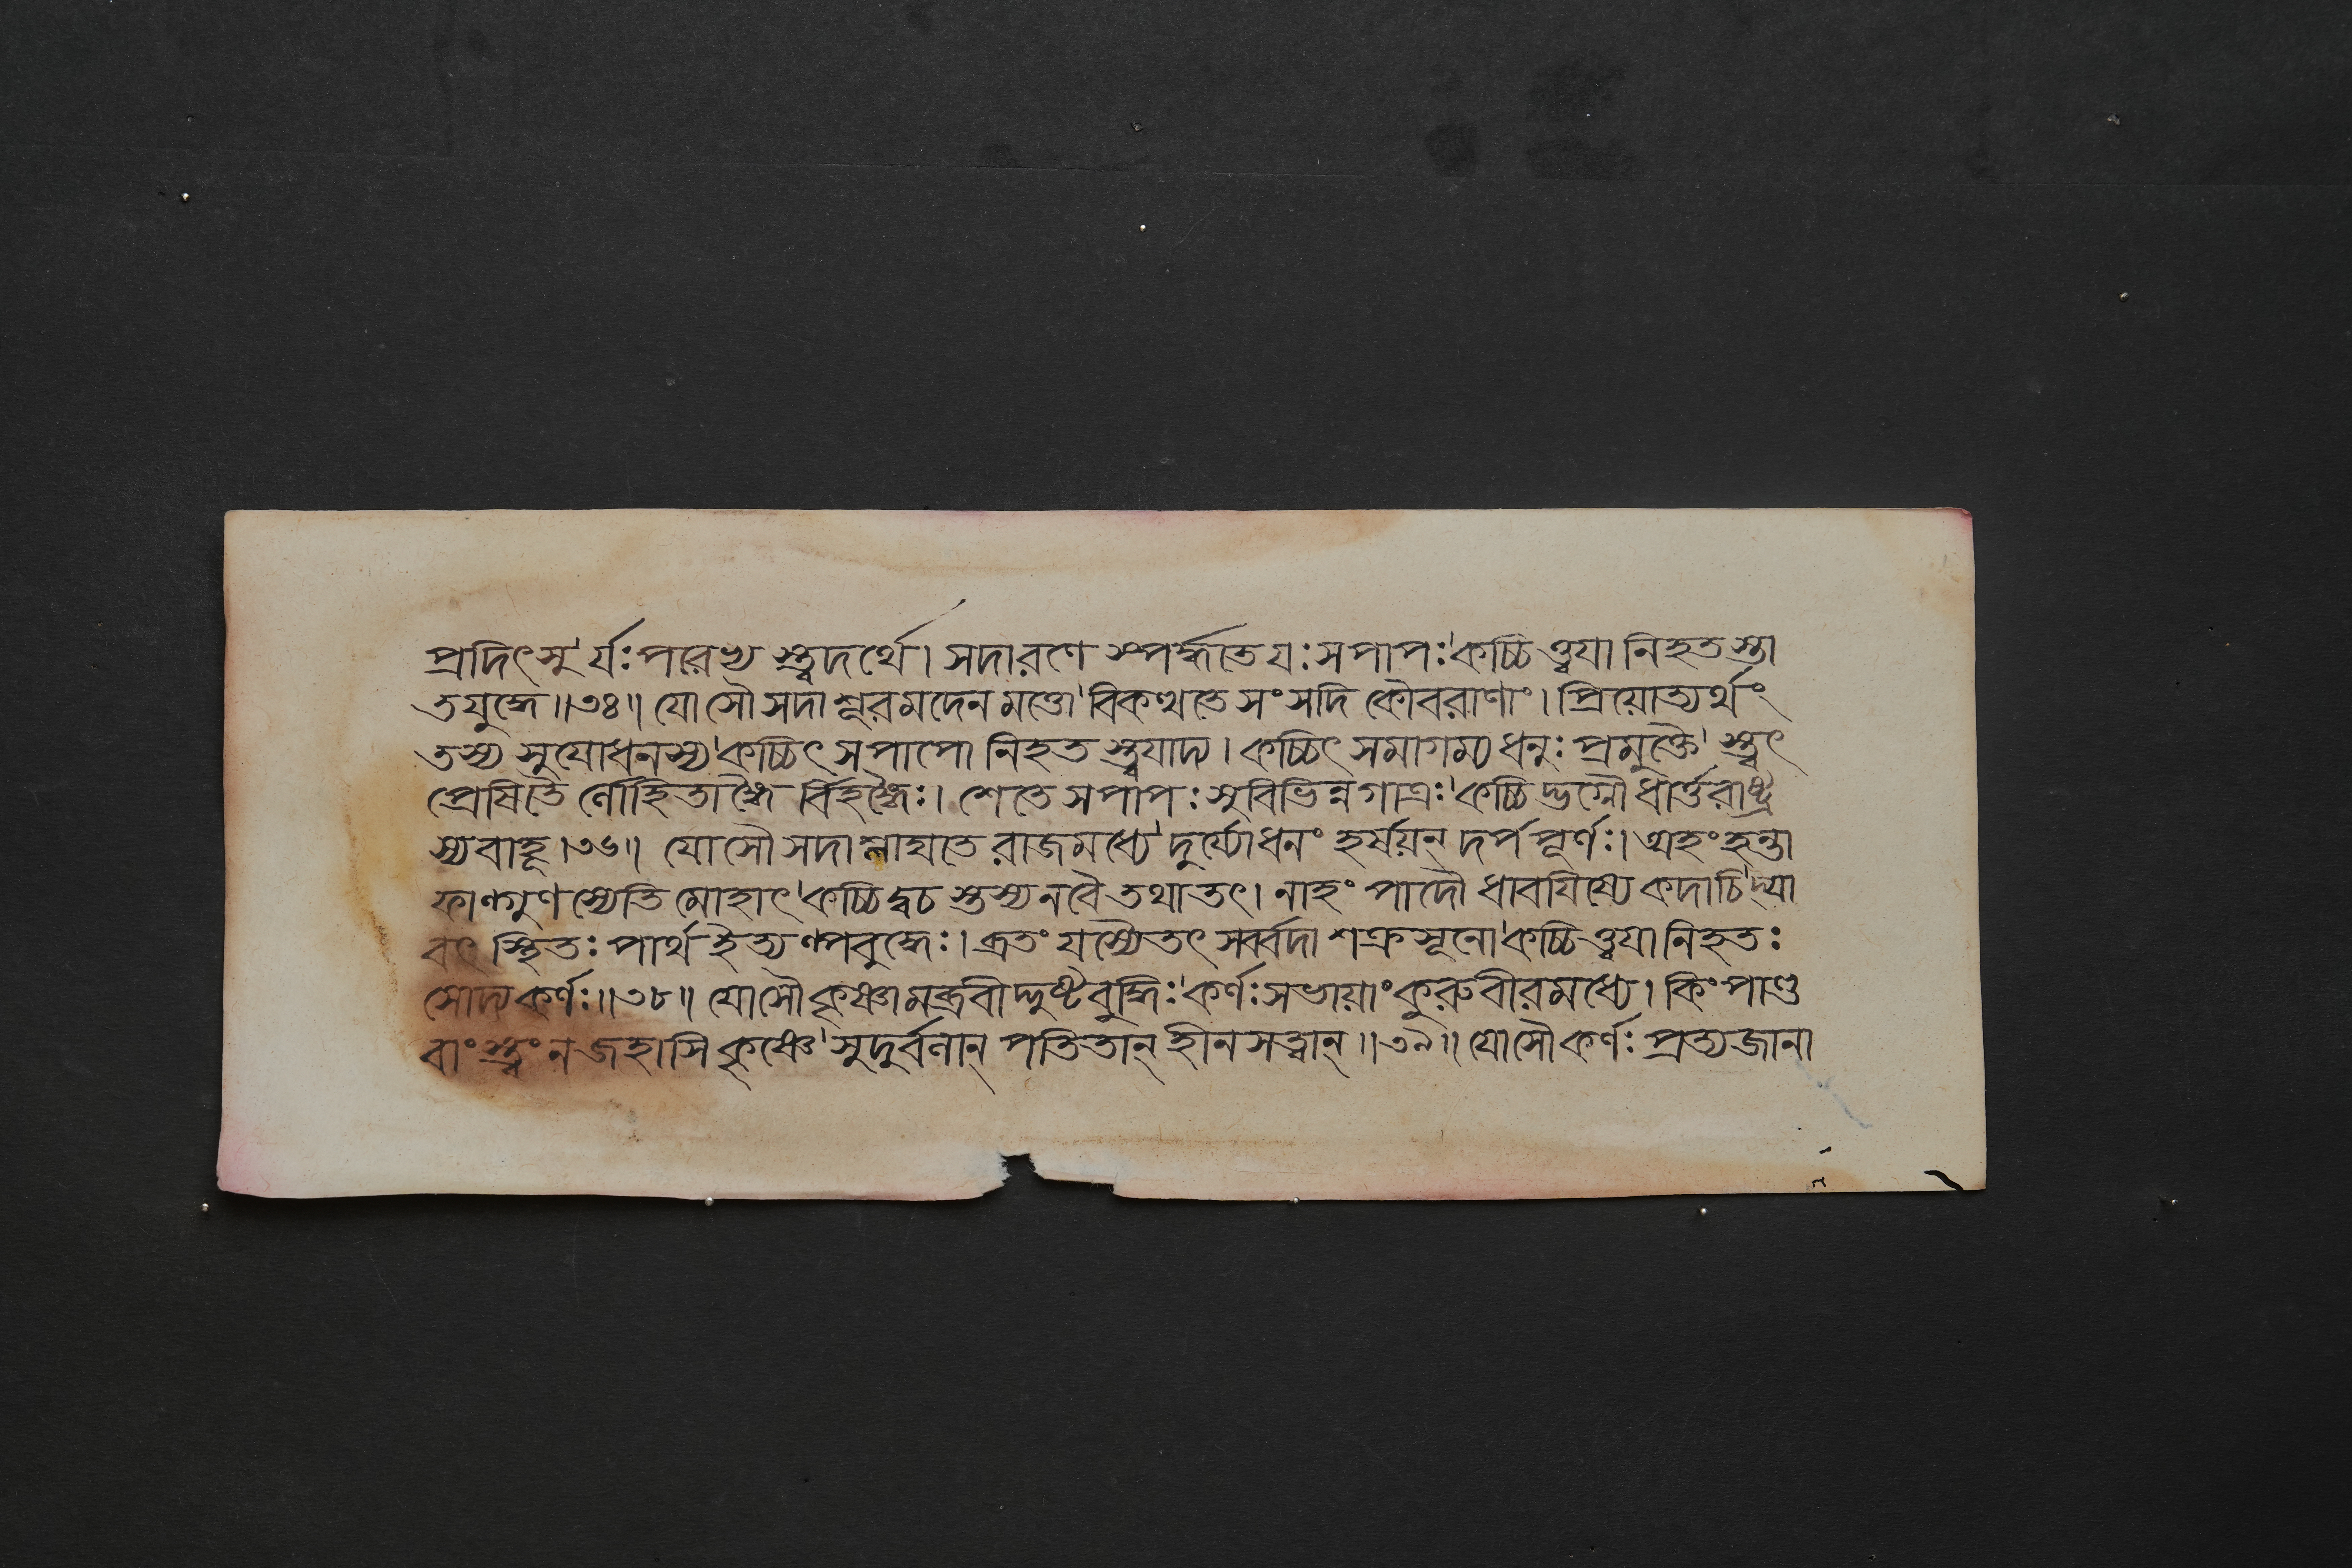 প্রদিৎসুর্যঃপরেখ্য স্ত্বদর্থে। সদারণে স্পর্দ্ধতেযঃসপাপঃ'কচ্চিত্ত্বযা নিহতস্তা
তযুদ্ধে॥৩৪॥ যোসৌসদাশূরমদেনমত্তো'বিকত্থতে সংসদি কৌবরাণাং। প্রিয়োত্যর্থং
তস্য সুযোধনস্য'কচ্চিৎসপাপো নিহতস্ত্বযাদ্য। কচ্চিৎসমাগম্য ধনুঃ প্রমুক্তৈ'স্ত্বৎ
প্রেষিতৈর্লোহিতাঙ্গৈর্বিহঙ্গৈঃ। শেতে সপাপঃসুবিভিন্নগাত্রঃ'কচ্চিদ্ভগ্নৌধার্ত্তরাষ্ট্র
স্যবাহূ।৩৬॥ যোসৌসদাশ্লাঘতে রাজমধ্যে'দুর্য্যোধনং হর্ষয়ন্ দর্পপূর্ণঃ। অহংহন্তা
ফাল্গুণস্যেতিমোহাৎ'কচ্চিদ্বচস্তস্যনবৈতথাতৎ। নাহং পাদৌ ধাবযিষ্যেকদাচি'দ্যা
বৎ স্থিতঃ পার্থ ইত্যল্পবুদ্ধেঃ। ব্রতং যস্যৈতৎসর্ব্বদাশক্রসূনো'কচ্চিত্ত্বযানিহতঃ
সোদ্যকর্ণঃ॥৩৮॥ যোসৌকৃষ্ণামব্রবীদ্দুষ্টবুদ্ধিঃ'কর্ণঃসভায়াংকুরুবীরমধ্যে। কিংপাণ্ড
বাংস্ত্বংনজহাসিকৃষ্ণে'সুদুর্বলান্ পতিতান্ হীনসত্ত্বান্॥৩৯॥ যোসৌকর্ণঃ প্রত্যজানা